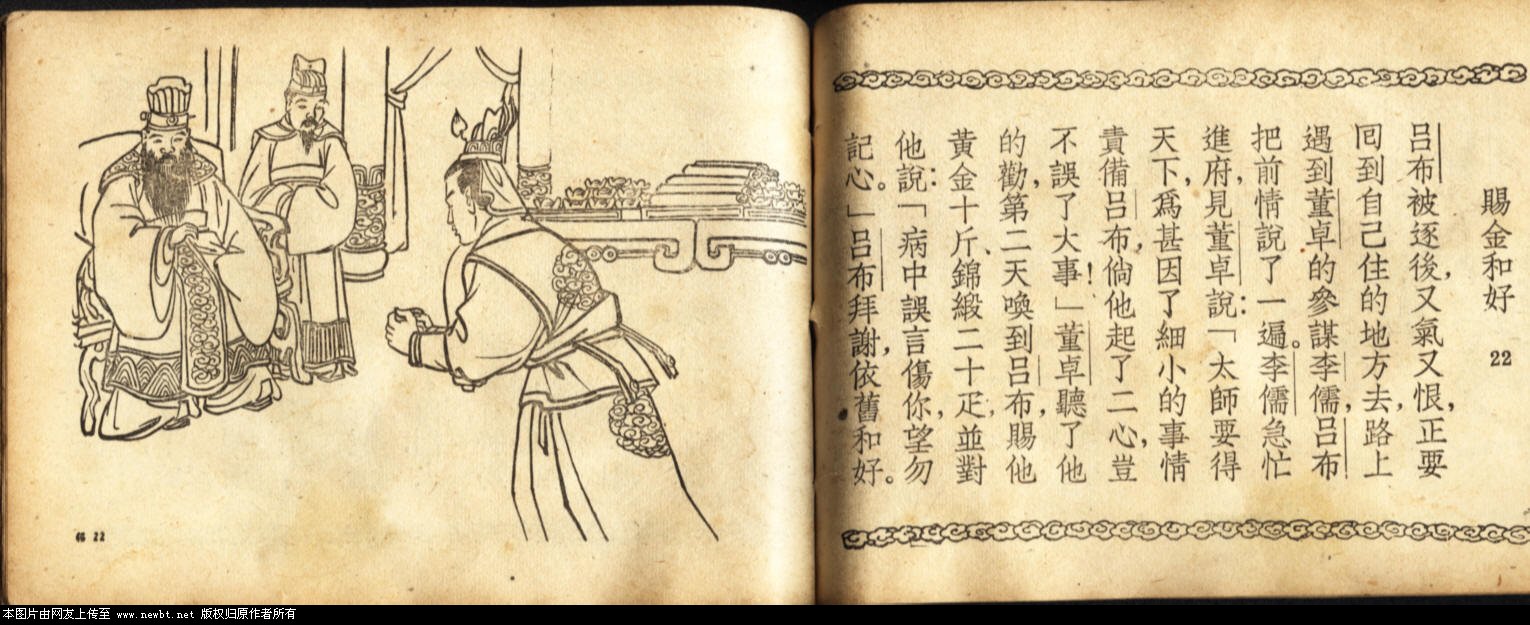 賜金和好 22
吕布被逐後，又氣又恨，正要
囘到自己住的地方去，路上
遇到董卓的參謀李儒，吕布
把前情說了一遍。李儒急忙
進府，見董卓說：「太師要得
天下，爲甚因了細小的事情
責備吕布，倘他起了二心，豈
不誤了大事！」董卓聽了他
的勸，第二天喚到吕布，賜他
黃金十斤、錦緞二十疋，並對
他說：「病中誤言傷你，望勿
記心。」吕布拜謝，依舊和好。
22
本图片由网友上传至 www.newbt.net 版权归原作者所有